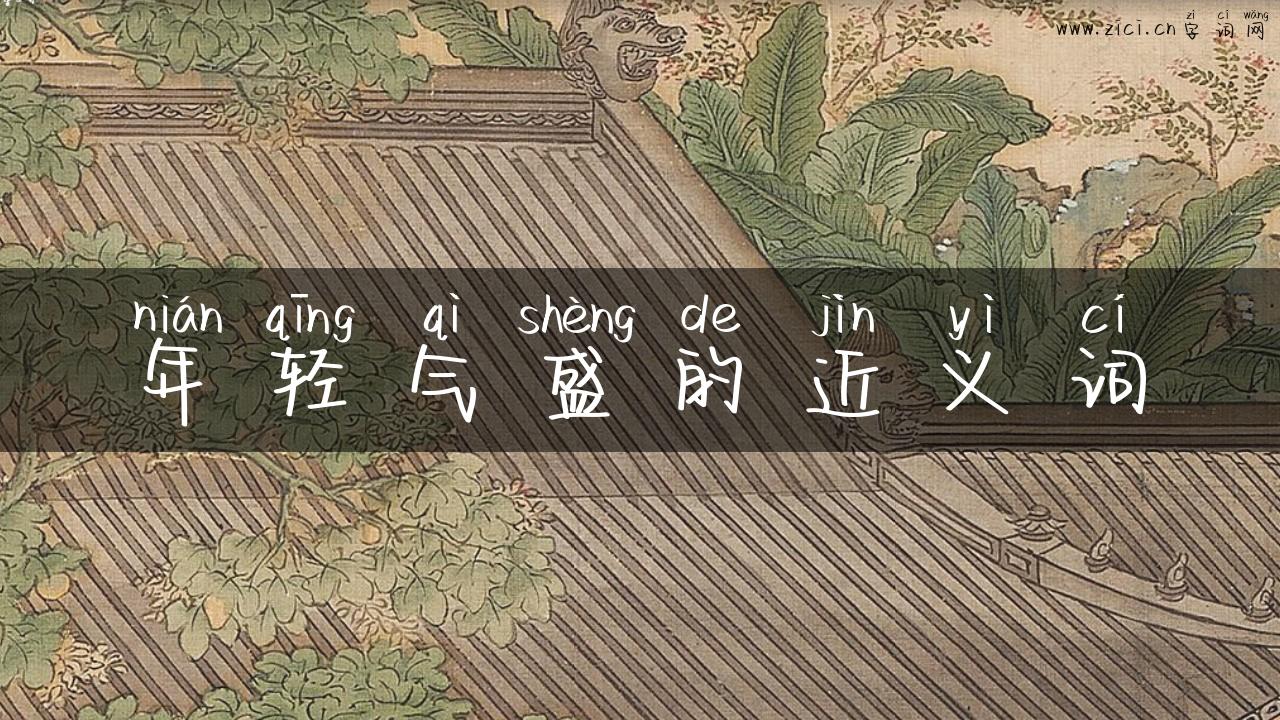 zì cí wǎng
www.zici.cn 字词网
nián qīng qì shèng de jìn yì cí
年轻气盛的近义词